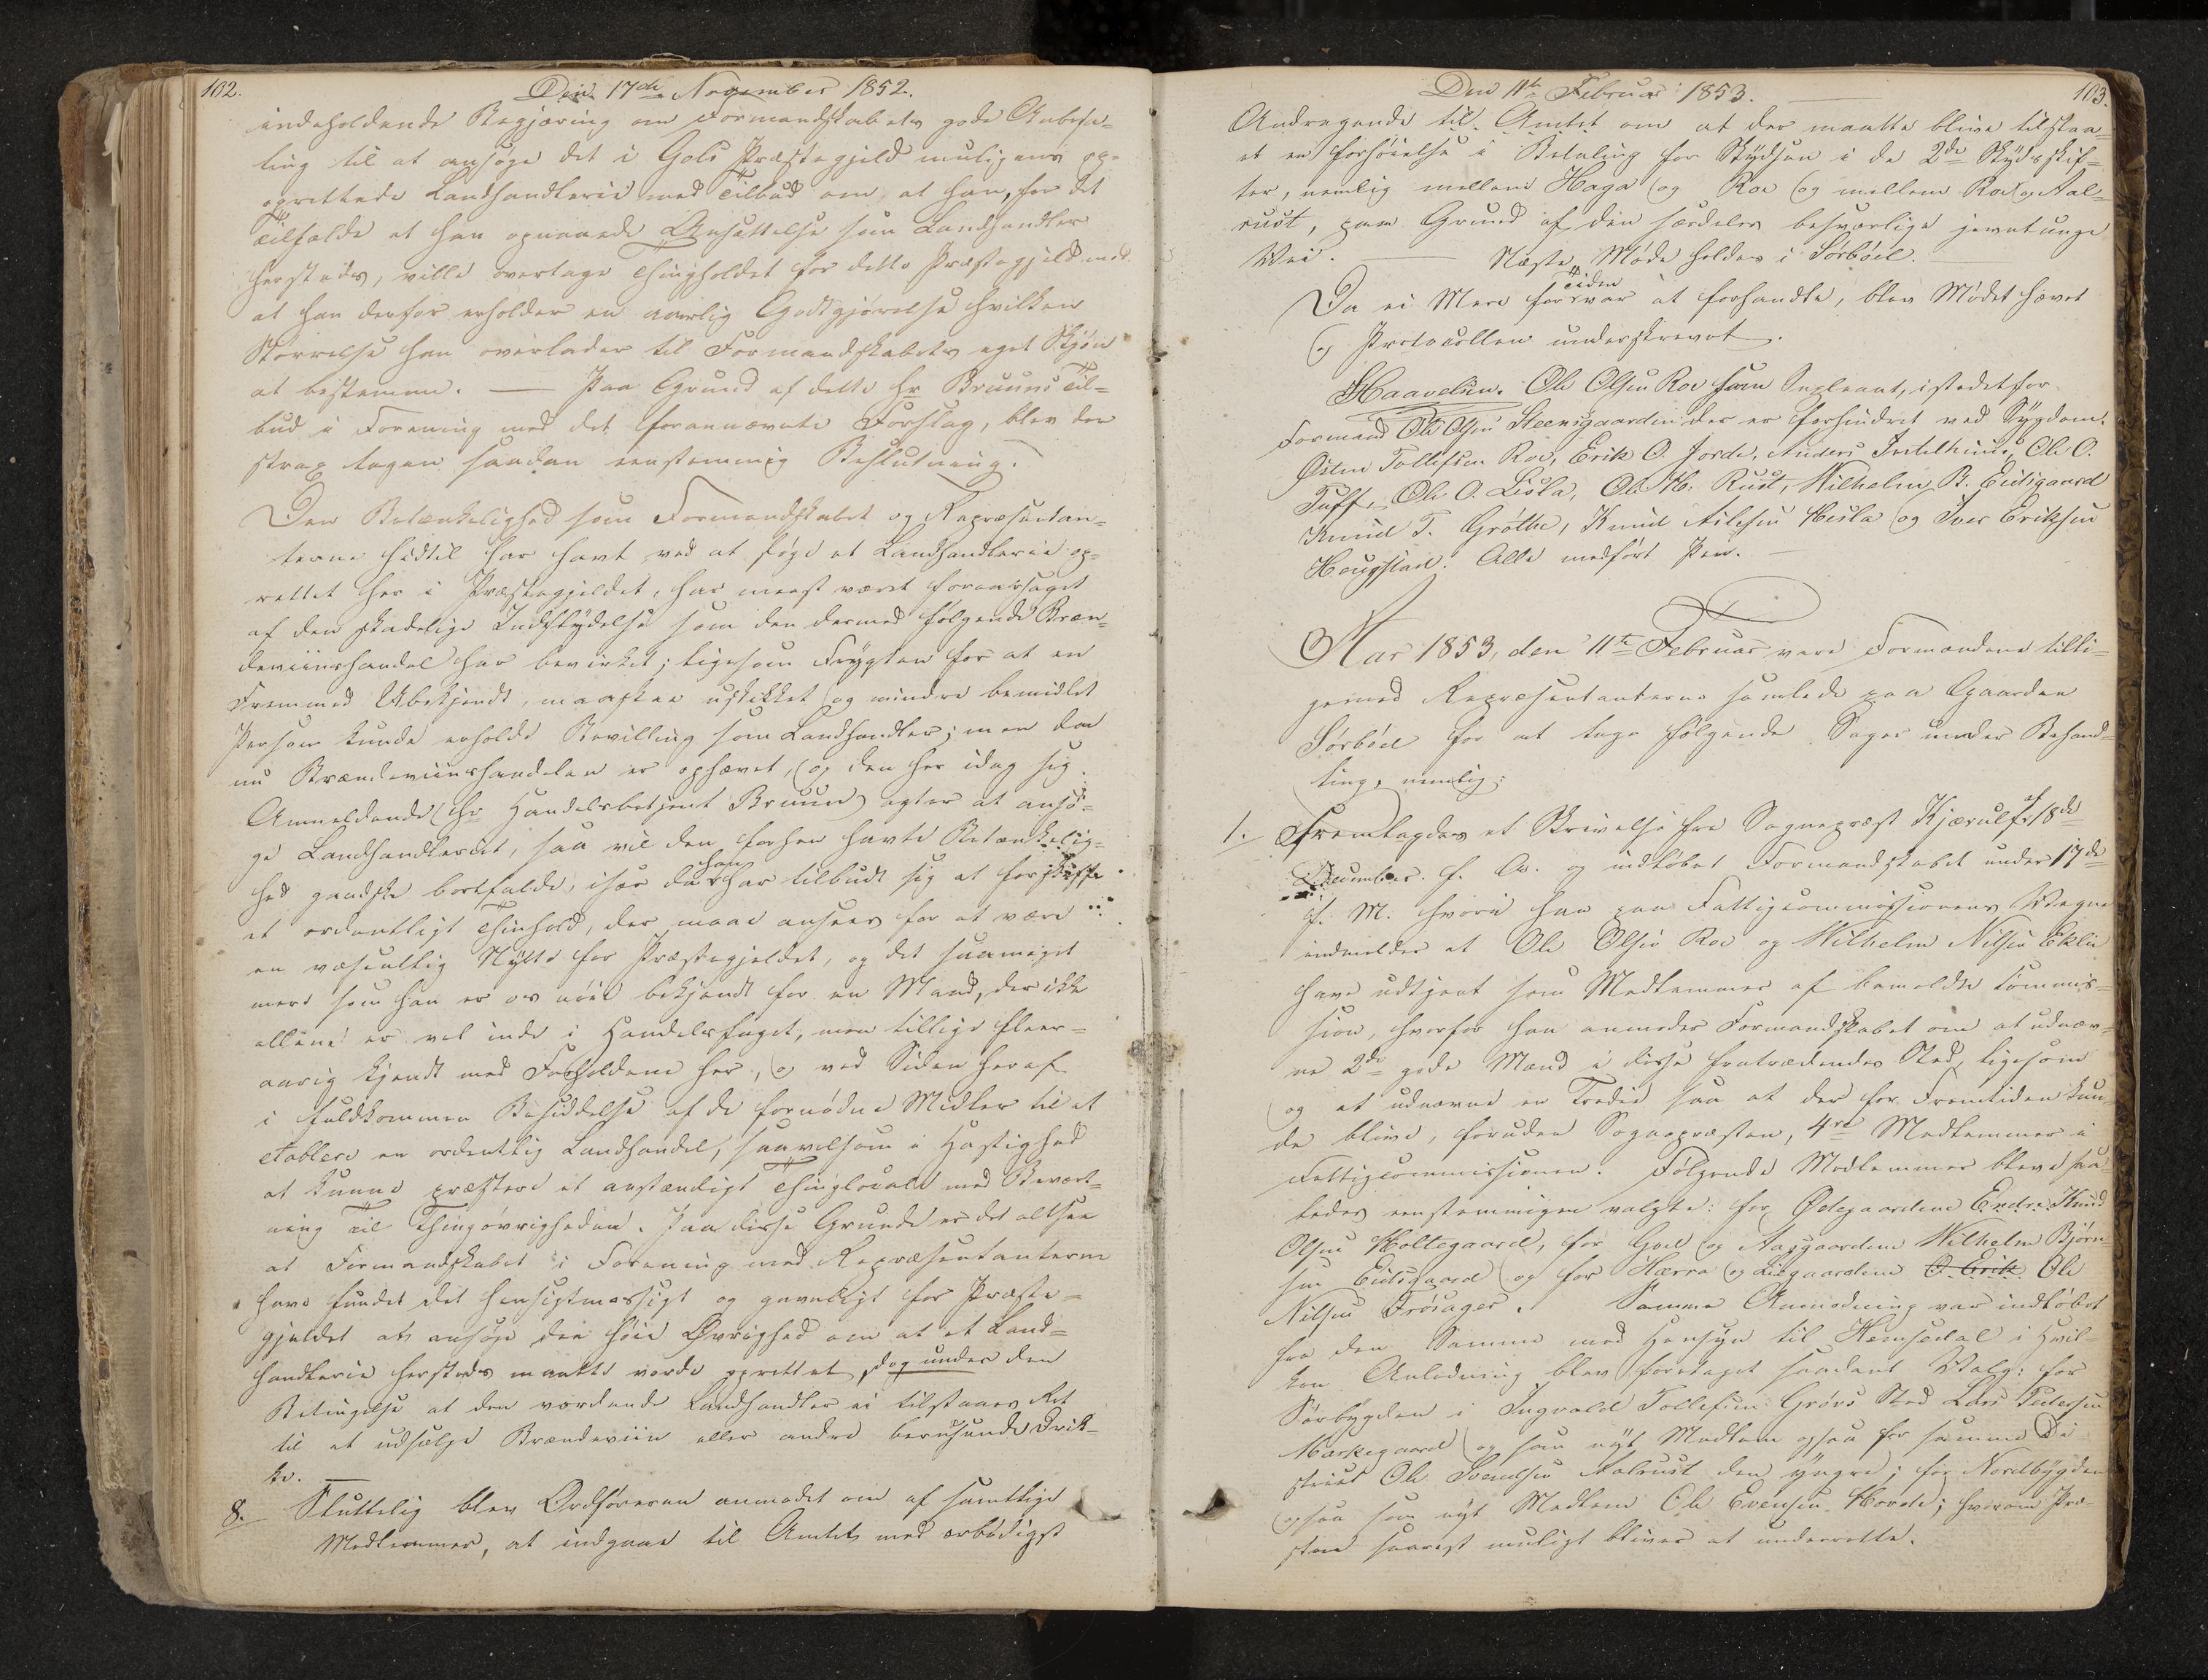 102.
Den 17de November 1852.
indeholdende Begjæring om Formandskabets gode Anbefa-
ling til at ansøge det i Gols Præstegjeld muligens op-
oprettede Landhandlerie med Tilbud om, at han, for det
Tilfælde at han opnaaede Ansættelse som Landhandler
hersteds, ville overtage Thingholdet for dette Præstegjeld mod
at han derfor erholder en aarlig Godtgjørelse hvilken
Størrelse han overlader til Formandskabets eget Skjøn
at bestemme. — Paa Grund af dette Hr Bruuns Til-
bud i Forening med det forannævnte Forslag, blev der
strax tagen saadan eenstemmig Beslutning:
Den Betænkelighed som Formandskabet og Repræsentan-
terne hidtil har havt ved at søge et Landhandlerie op-
rettet her i Præstegjeldet, har meest været foraarsaget
af den skadelige Indflydelse som den dermed følgende Bræn-
deviinshandel har bevirket; ligesom Frygten for at en
Fremmed Ubekjendt, maaskee uskikket og mindre bemidlet
Person kunde erholde Bevilling som Landhandler; men da
nu Brændeviinshandelen er ophævet, og den her idag sig
Anmeldende (Hr Handelsbetjent Bruun) agter at ansø-
ge Landhandleriet, saa vil den forhen havte Betænkelig-
hed gandske bortfalde, især da han har tilbudt sig at forskaffe
et ordentligt Thinhold, der maae ansees for at være
en væsentlig Nytte for Præstegjeldet, og det saameget
mere som han er os nøie bekjendt for en Mand, der ikke
allene er vel inde i Handelsfaget, men tillige fleer-
aarig kjendt med Forholdene her, og ved Siden heraf
i fuldkommen Besiddelse af de fornødne Midler til at
etablere en ordentlig Landhandel, saavelsom i Hastighed
at kunne præstere et anstændigt Thinglocale med Bevært-
ning til Thingøvrigheden. Paa disse Grunde er det altsaa
at Formandskabet i Forening med Repræsentanterne
have fundet det hensigtmæssigt og gavnligt for Præste-
gjeldet at ansøge den høie Øvrighed om at et Land-
handlerie hersteds maatte vorde oprettet, dog under den
Betingelse at den vordende Landhandler ei tilstaaes Ret
til at udsælge Brændeviin eller andre berusende Drik-
ke. —
8. Sluttelig blev Ordføreren anmodet om af samtlige
Medlemmer, at indgaae til Amtet med ærbødigst
Den 11te Februar 1853.
103.
Andragende til Amtet om at der maatte blive tilstaa-
et en Forhøielse i Betaling for Skydsen i de 2de Skydsskif-
ter, nemlig mellem Haga og Roe og mellem Roe og Aal-
rust, paa Grund af den særdeles besværlige jevntunge
Vei. — Næste Møde holdes i Sørbøel.
Da ei Mere for Tiden var at forhandle, blev Mødet hævet
og Protocollen underskrevet.
Haavelsen. Ole Olsen Roe som Supleant, istedetfor
Formand Ole Olsen Steensgaarden der er forhindret ved Sygdom.
Østen Tollefsen Roe, Erik O. Jorde, Anders Intelhuus, Ole O.
Tuff, Ole O. Lisla, Ole H. Rust, Wilhelm B. Eidsgaard
Knud T. Grøthe, Knud Aslesen Hesla og Iver Eriksen
Hougstad. Alle medført Pen.
Aar 1853, den 11te Februar vare Formændene tilli-
gemed Repræsentanterne samlede paa Gaarden
Sørbøel for at tage følgende Sager under Behand-
ling, nemlig:
1. Fremlagdes et Skrivelse fra Sognepræst Kjærulf af 18de
December f. A. og indløbet Formandskabet under 17de
f. M. hvori han paa Fattigcommissionens Vegne
indmelder at Ole Olsen Roe og Wilhelm Nilsen Eklie
have udtjent som Medlemmer af bemeldte Commis-
sion, hvorfor han anmoder Formandskabet om at udnæv-
ne 2de gode Mænd i disse fratrædendes Sted, ligesom
og at udnævne en Tredie saa at der for Fremtiden kun-
de blive, foruden Sognepræsten, 4re Medlemmer i
Fattigcommissionen. Følgende Medlemmer bleve saa-
ledes eenstemmigen valgte: for Ødegaardene Endre Knud
Olsen Holtegaard, for Goel og Aasgaardene Wilhelm Bjørn-
sen Eidsgaard og for Hærra og Liegaardene O. Erik Ole
Nilsen Trøsager. Samme Anmodning var indløbet
fra den Samme med Hensyn til Hemsedal i hvil-
ken Anledning blev foretaget saadant Valg: for
Sørbygden i Ingvald Tollefsen Grøvs Sted Lars Pedersen
Markegaard og som nyt Medlem ogsaa for samme Di-
strict Ole Svendsen Aalrust den yngre; for Nordbygden
ogsaa som nyt Medlem Ole Evensen Horde; hvorom Præ-
sten snarest muligt bliver at underrette.